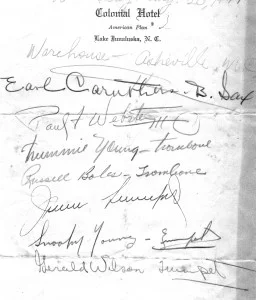 Colonial Hotel
American Plan
Lake Junaluska, N. C.
Warehouse - Asheville,
Earl Caruthers - B. Sax
Paul F Webster
Trummie Young - trombone
Russell Boles - Trombone
Snooky Young - Trumpet
Gerald Wilson Trumpet